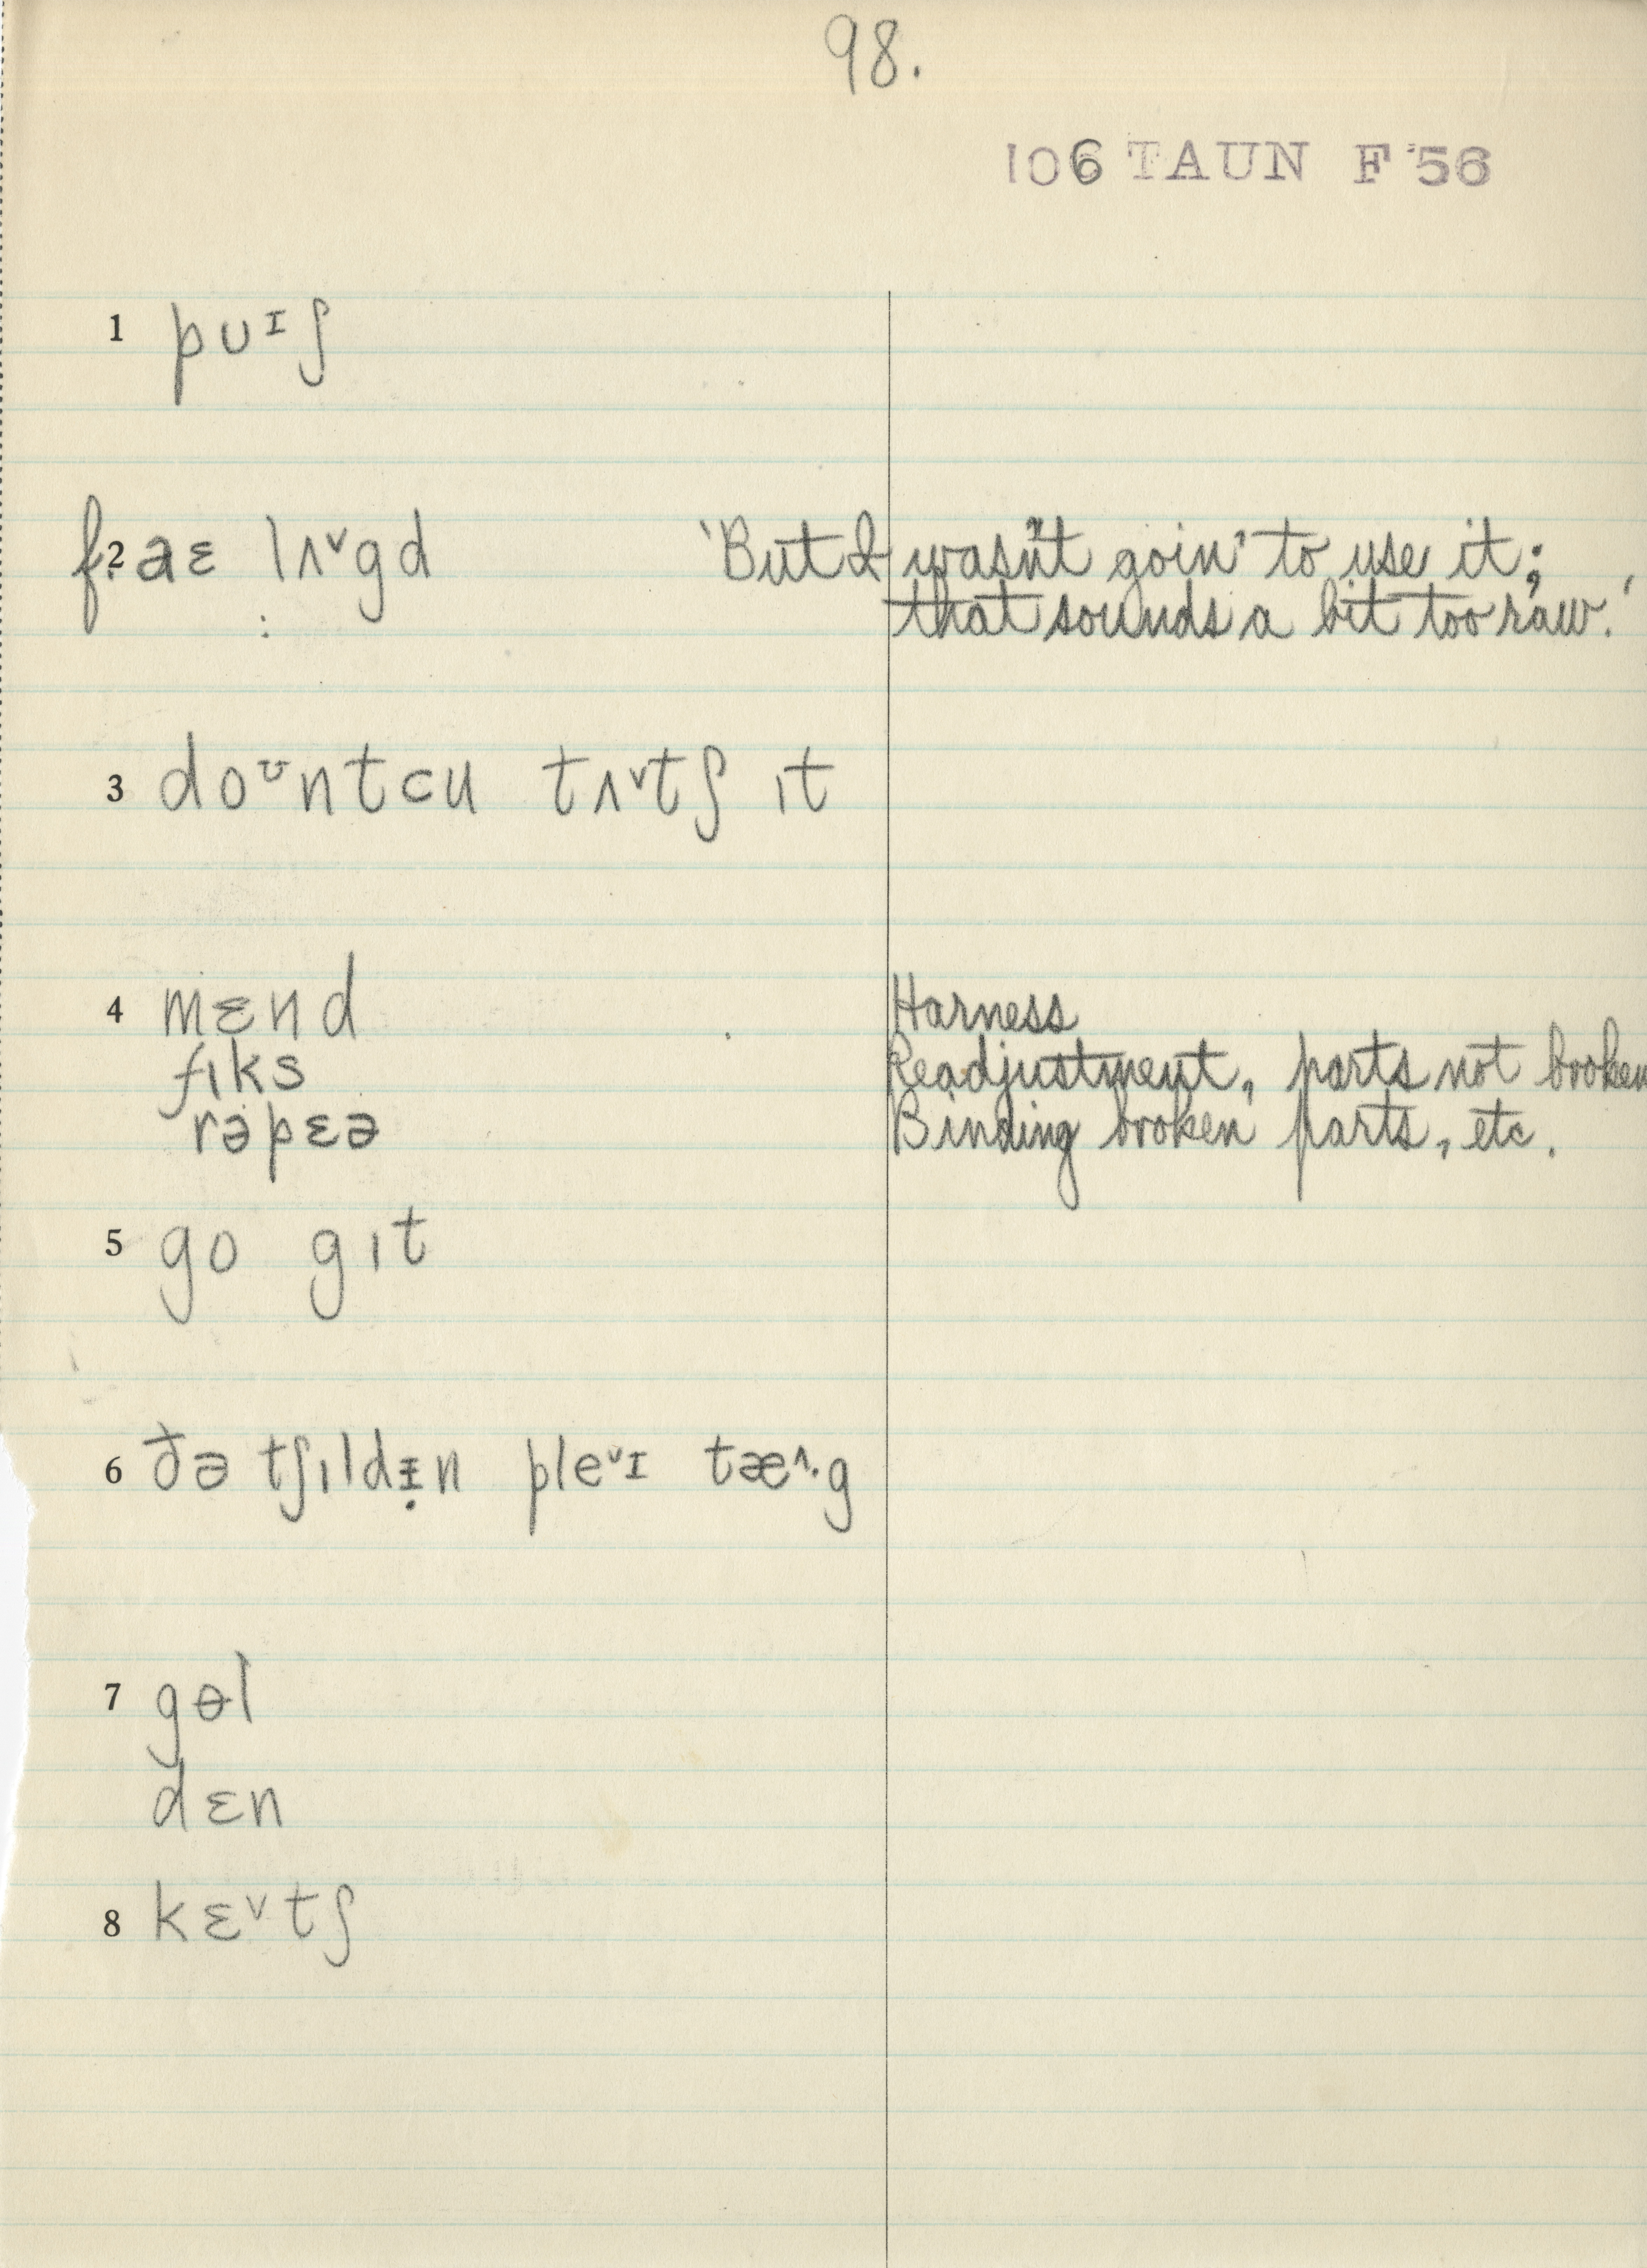 98.
106 TAUN F 56
1 pʊᶦʃ
f. 2 aɛ lʌ˅gd 'But I wasn't goin' to use it;
that sounds a bit too raw.'
3 doᶷntcu tʌ˅tʃ ɪt
4 mɛnd Harness
fɪks Readjustment, parts not broken
rəpɛə Binding broken parts, etc.
5 go gɪt
6 ðə tʃɪldᵻ̣n ple˅ᶦ tæ˄·g
7 gɵl
dɛn
8 kɛ˅tʃ